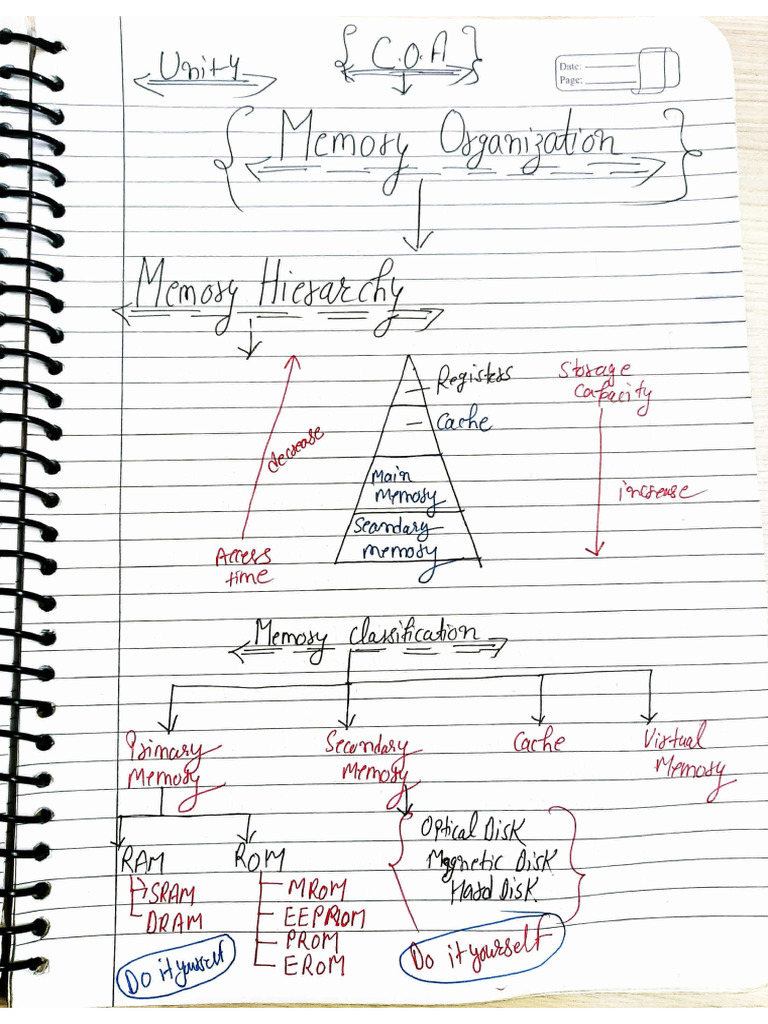 Unity
{ C.O.A }
Date:
Page:
{ Memory Organization }
Memory Hierarchy
Registers
Cache
Main
Memory
Secondary
Memory
decrease
Access
time
Storage
Capacity
increase
Memory classification
Primary
Memory
Secondary
Memory
Cache
Virtual
Memory
RAM
SRAM
DRAM
Do it yourself
ROM
MROM
EEPROM
PROM
EROM
Optical Disk
Magnetic Disk
Hard Disk
Do it yourself